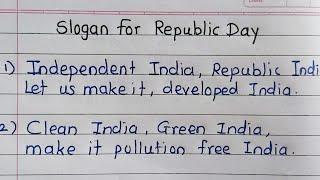 Slogan for Republic Day
1) Independent India, Republic Indi
Let us make it, developed India.
2) Clean India, Green India,
make it pollution free India.